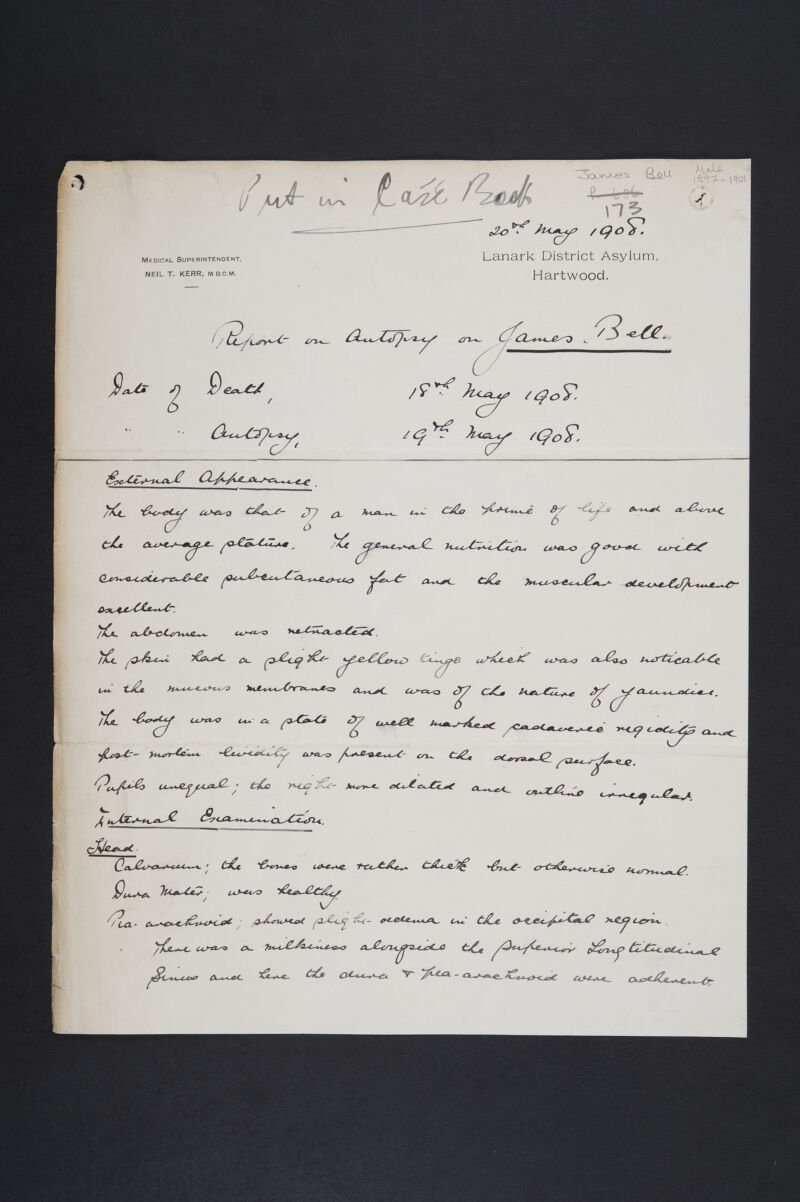 Put in Case Book
James Bell
Male
1897-1901
173
20th May 1908.
MEDICAL SUPERINTENDENT,
NEIL T. KERR, M.B.C.M.
Lanark District Asylum,
Hartwood.
Report on Autopsy on James Bell.
Date of Death, 18th May 1908.
" " Autopsy, 19th May 1908.
External Appearance.
The body was that of a man in the prime of life and above
the average stature. The general nutrition was good with
considerable subcutaneous fat and the muscular development
excellent.
The abdomen was retracted.
The skin had a slight yellow tinge which was also noticable
in the mucous membranes and was of the nature of jaundice.
The body was in a state of well marked cadaveric rigidity and
post-mortem lividity was present on the dorsal surface.
Pupils unequal; the right more dilated and outline irregular.
Internal Examination.
Head.
Calvarium; the bones were rather thick but otherwise normal.
Dura Mater; was healthy.
Pia-arachnoid; showed slight oedema in the occipital region.
There was a milkiness alongside the Superior Longtitudinal
Sinus and here the dura & pia-arachnoid were adherent.